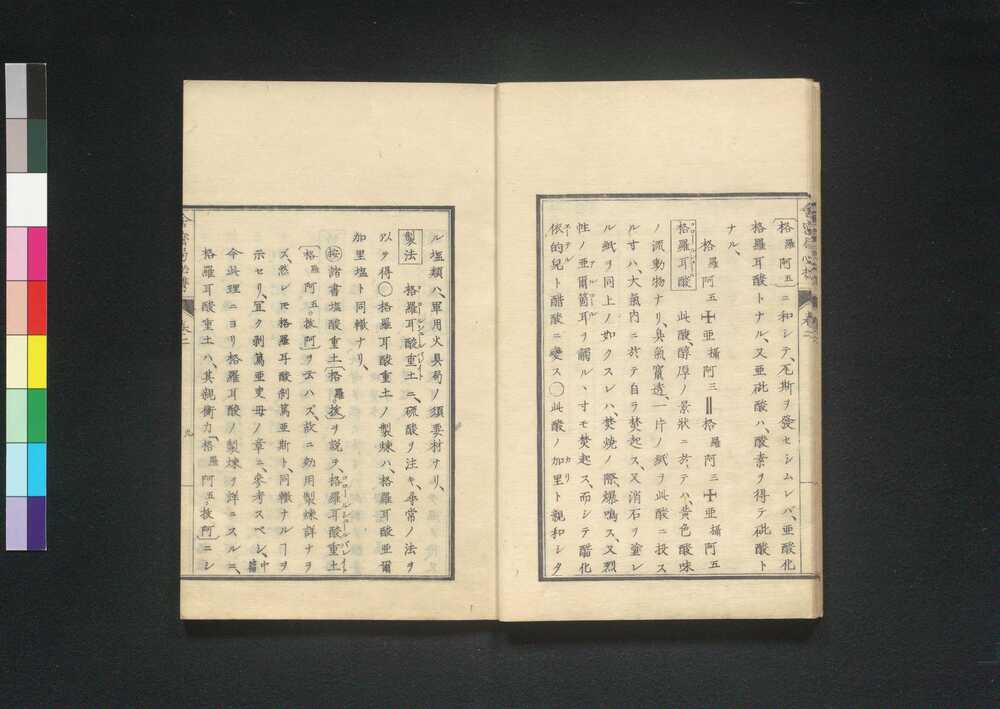 格羅阿五ニ和シテ、瓦斯ヲ發セシムレバ、亜酸化
格羅耳酸トナル、又亜砒酸ハ、酸素ヲ得テ砒酸ト
ナル、
格羅阿五十亜攝阿三‖格羅阿三十亜攝阿五
格羅耳酸 此酸、醇厚ノ景状ニ於テハ、黄色酸味
ノ流動物ナリ、臭氣竄透、一片ノ紙ヲ此酸ニ投ス
ル寸ハ、大氣内ニ於テ自ラ焚起ス、又消石ヲ塗レ
ル紙ヲ同上ノ如クスレハ、焚焼ノ際、爆鳴ス、又烈
性ノ亜爾箇耳ヲ觸ル丶寸モ焚起ス、而シテ醋化
依的兒ト醋酸ニ變ス〇此酸ノ加里ト親和シタ
ル塩類ハ、軍用火具局ノ須要材ナリ、
製法 格羅耳酸重土ニ、硫酸ヲ注キ、尋常ノ法ヲ
以テ得〇格羅耳酸重土ノ製煉ハ、格羅耳酸亜爾
加里塩ト同轍ナリ、
按諸書塩酸重土格羅抜ヲ説ヲ、格羅耳酸重土
格羅阿五抜阿ヲ云ハズ、故ニ効用製煉詳ナラ
ズ、然レモ格羅耳酸剝篤亜斯ト、同轍ナルヿヲ
示セリ、冝ク剝篤亜叟母ノ章ニ、參考スベシ、中
今此理ニヨリ格羅耳酸ノ製煉ヲ詳ニスルニ、
格羅耳酸重土ハ、其親衝力格羅阿五抜阿ニシ
巻二
九